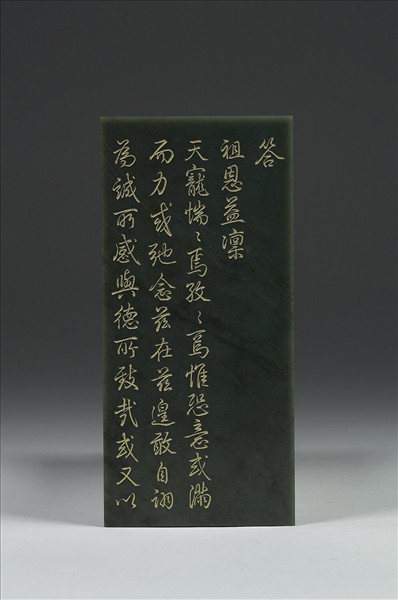 答
祖恩益凜
天寵惴〻焉孜〻焉惟恐意或滿
而力或弛念茲在茲遑敢自詡
為誠所感與德所致哉或又以